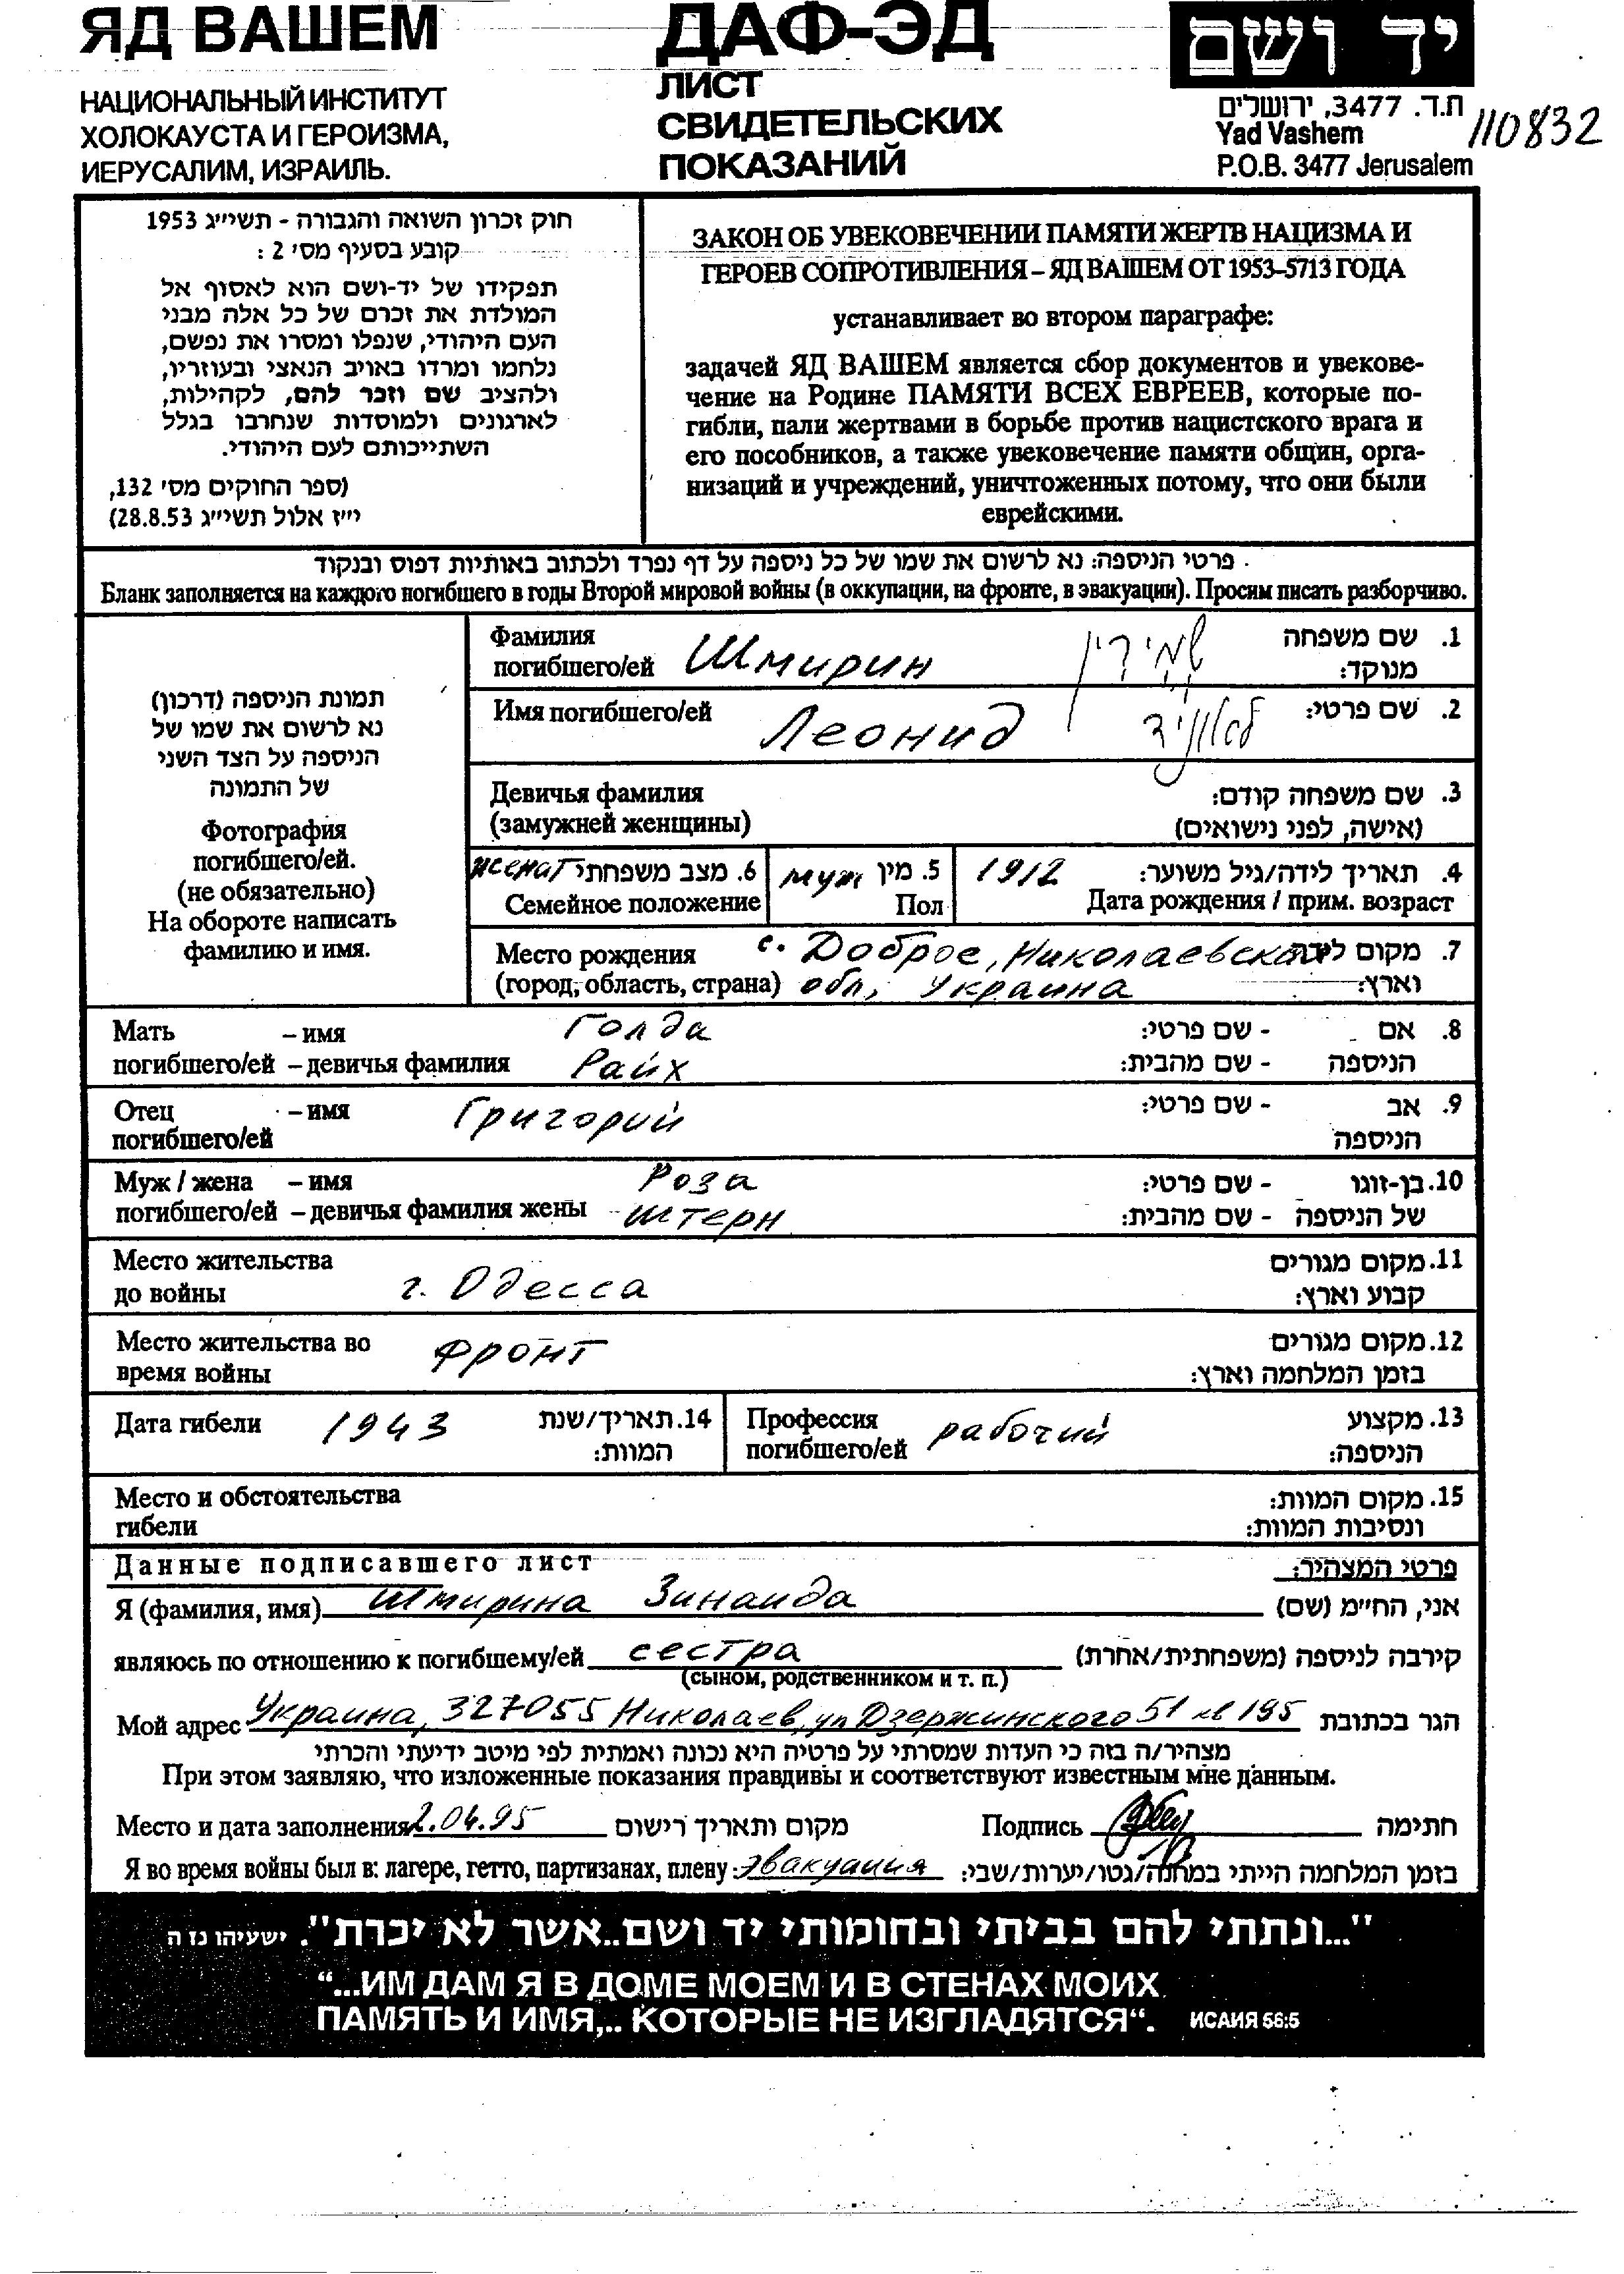 ЯД ВАШЕМ
НАЦИОНАЛЬНЫЙ ИНСТИТУТ
ХОЛОКАУСТА И ГЕРОИЗМА,
ИЕРУСАЛИМ, ИЗРАИЛЬ.
ДАФ-ЭД
ЛИСТ
СВИДЕТЕЛЬСКИХ
ПОКАЗАНИЙ
יד ושם
ת.ד. 3477, ירושלים
Yad Vashem
P.O.B. 3477 Jerusalem
110832
חוק זכרון השואה והגבורה - תשי״ג 1953
קובע בסעיף מס׳ 2 :
תפקידו של יד-ושם הוא לאסוף אל
המולדת את זכרם של כל אלה מבני
העם היהודי, שנפלו ומסרו את נפשם,
נלחמו ומרדו באויב הנאצי ובעוזריו,
ולהציב שם וזכר להם, לקהילות,
לארגונים ולמוסדות שנחרבו בגלל
השתייכותם לעם היהודי.
(ספר החוקים מס׳ 132,
י״ז אלול תשי״ג 28.8.53)
ЗАКОН ОБ УВЕКОВЕЧЕНИИ ПАМЯТИ ЖЕРТВ НАЦИЗМА И
ГЕРОЕВ СОПРОТИВЛЕНИЯ – ЯД ВАШЕМ ОТ 1953-5713 ГОДА
устанавливает во втором параграфе:
задачей ЯД ВАШЕМ является сбор документов и увекове-
чение на Родине ПАМЯТИ ВСЕХ ЕВРЕЕВ, которые по-
гибли, пали жертвами в борьбе против нацистского врага и
его пособников, а также увековечение памяти общин, орга-
низаций и учреждений, уничтоженных потому, что они были
еврейскими.
פרטי הניספה: נא לרשום את שמו של כל ניספה על דף נפרד ולכתוב באותיות דפוס ובנקוד
Бланк заполняется на каждого погибшего в годы Второй мировой войны (в оккупации, на фронте, в эвакуации). Просим писать разборчиво.
תמונת הניספה (דרכון)
נא לרשום את שמו של
הניספה על הצד השני
של התמונה
Фотография
погибшего/ей.
(не обязательно)
На обороте написать
фамилию и имя.
Фамилия
погибшего/ей Шмирин שמירין 1. שם משפחה
מנוקד:
Имя погибшего/ей Леонид לאוניד 2. שם פרטי:
Девичья фамилия 3. שם משפחה קודם:
(замужней женщины) (אישה, לפני נישואים)
женат 6. מצב משפחתי муж 5. מין 1912 4. תאריך לידה/גיל משוער:
Семейное положение Пол Дата рождения / прим. возраст
Место рождения с. Доброе, Николаевская 7. מקום לידה
(город, область, страна) обл, Украина וארץ:
Мать – имя Голда 8. אם - שם פרטי:
погибшего/ей – девичья фамилия Райх הניספה - שם מהבית:
Отец – имя Григорий 9. אב - שם פרטי:
погибшего/ей הניספה
Муж / жена – имя Роза 10. בן-זוגו - שם פרטי:
погибшего/ей – девичья фамилия жены Штерн של הניספה - שם מהבית:
Место жительства 11. מקום מגורים
до войны г. Одесса קבוע וארץ:
Место жительства во фронт 12. מקום מגורים
время войны בזמן המלחמה וארץ:
Дата гибели 1943 14. תאריך/שנת
המוות:
Профессия
погибшего/ей рабочий 13. מקצוע
הניספה:
Место и обстоятельства 15. מקום המוות:
гибели ונסיבות המוות:
Данные подписавшего лист פרטי המצהיר:
Я (фамилия, имя) Шмирина Зинаида אני, החי״מ (שם)
являюсь по отношению к погибшему/ей сестра קירבה לניספה (משפחתית/אחרת)
(сыном, родственником и т. п.)
Мой адрес Украина, 327055 Николаев, ул Дзержинского 51 кв 195 הגר בכתובת
מצהיר/ה בזה כי העדות שמסרתי על פרטיה היא נכונה ואמתית לפי מיטב ידיעתי והכרתי
При этом заявляю, что изложенные показания правдивы и соответствуют известным мне данным.
Место и дата заполнения 2.04.95 מקום ותאריך רישום Подпись חתימה
Я во время войны был в: лагере, гетто, партизанах, плену: эвакуация בזמן המלחמה הייתי במחנה/גטו/יערות/שבי:
"...ונתתי להם בביתי ובחומותי יד ושם..אשר לא יכרת". ישעיהו נז ה
“...ИМ ДАМ Я В ДОМЕ МОЕМ И В СТЕНАХ МОИХ
ПАМЯТЬ И ИМЯ,.. КОТОРЫЕ НЕ ИЗГЛАДЯТСЯ“. ИСАИЯ 56:5